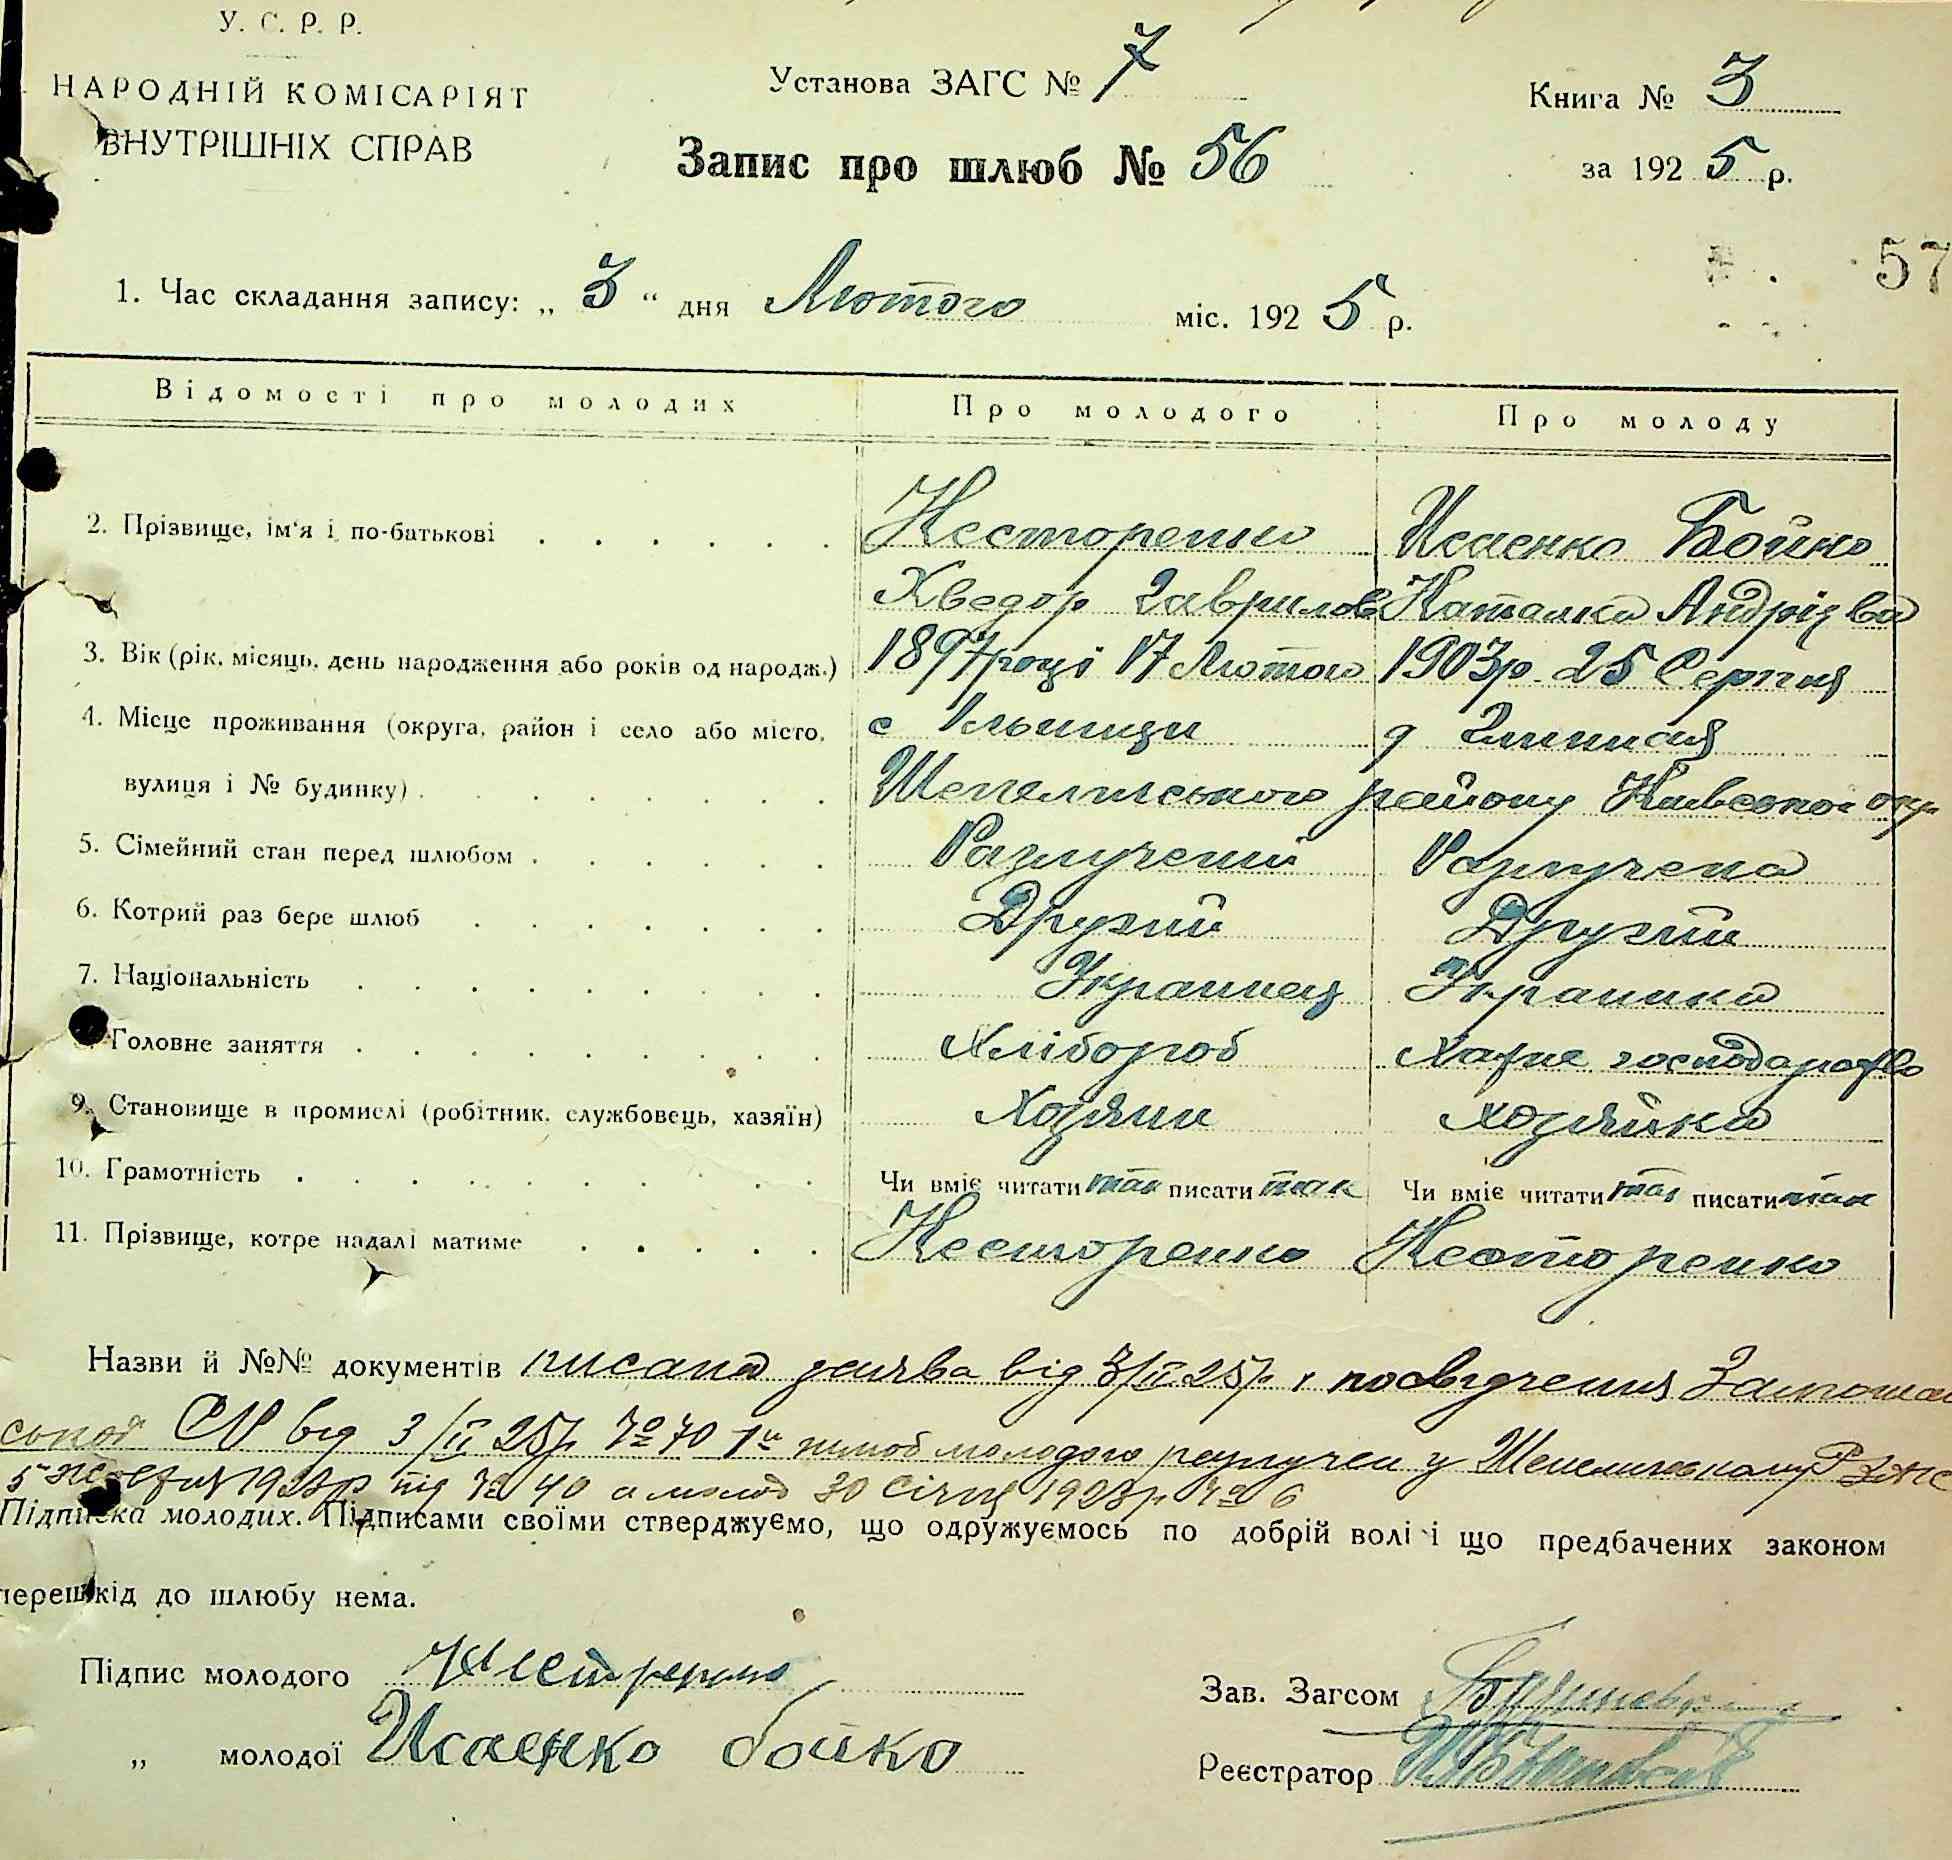 У. С. Р. Р.
НАРОДНІЙ КОМІСАРІЯТ
ВНУТРІШНІХ СПРАВ
Установа ЗАГС № 7
Книга № 3
Запис про шлюб № 56
за 1925 р.
57
1. Час складання запису: „ 3 “ дня Лютого міс. 1925 р.
Відомості про молодих Про молодого Про молоду
2. Прізвище, ім'я і по-батькові Несторенко Исаенко Бойко
Хведор Гаврилов Наталка Андріэва
3. Вік (рік, місяць, день народження або років од народж.) 1897 році 17 Лютого 1903р. 25 Серпня
4. Місце проживання (округа, район і село або місто, с Ільинци д Глинная
вулиця і № будинку) Шепелицького району Київской окр
5. Сімейний стан перед шлюбом Разлучений Разлучена
6. Котрий раз бере шлюб Другий Другий
7. Національність Украинец Украинка
Головне заняття Хлібороб Хатне господарство
9. Становище в промислі (робітник, службовець, хазяїн) Хозяин Хозяйка
10. Грамотність Чи вміє читати так писати так Чи вміє читати так писати так
11. Прізвище, котре надалі матиме Несторенко Несторенко
Назви й №№ документів писана заява від 3/II 25р. і посвідчения
від 3/II 25р. № 70 1й шлюб молодого разлучен у Шепелицькому
1923р під № 40 а молод 30 Січня 1923р № 6
Підписка молодих. Підписами своїми стверджуємо, що одружуємось по добрій волі і що предбачених законом
перешкід до шлюбу нема.
Підпис молодого
Зав. Загсом
„ молодої Исаенко бойко
Реєстратор